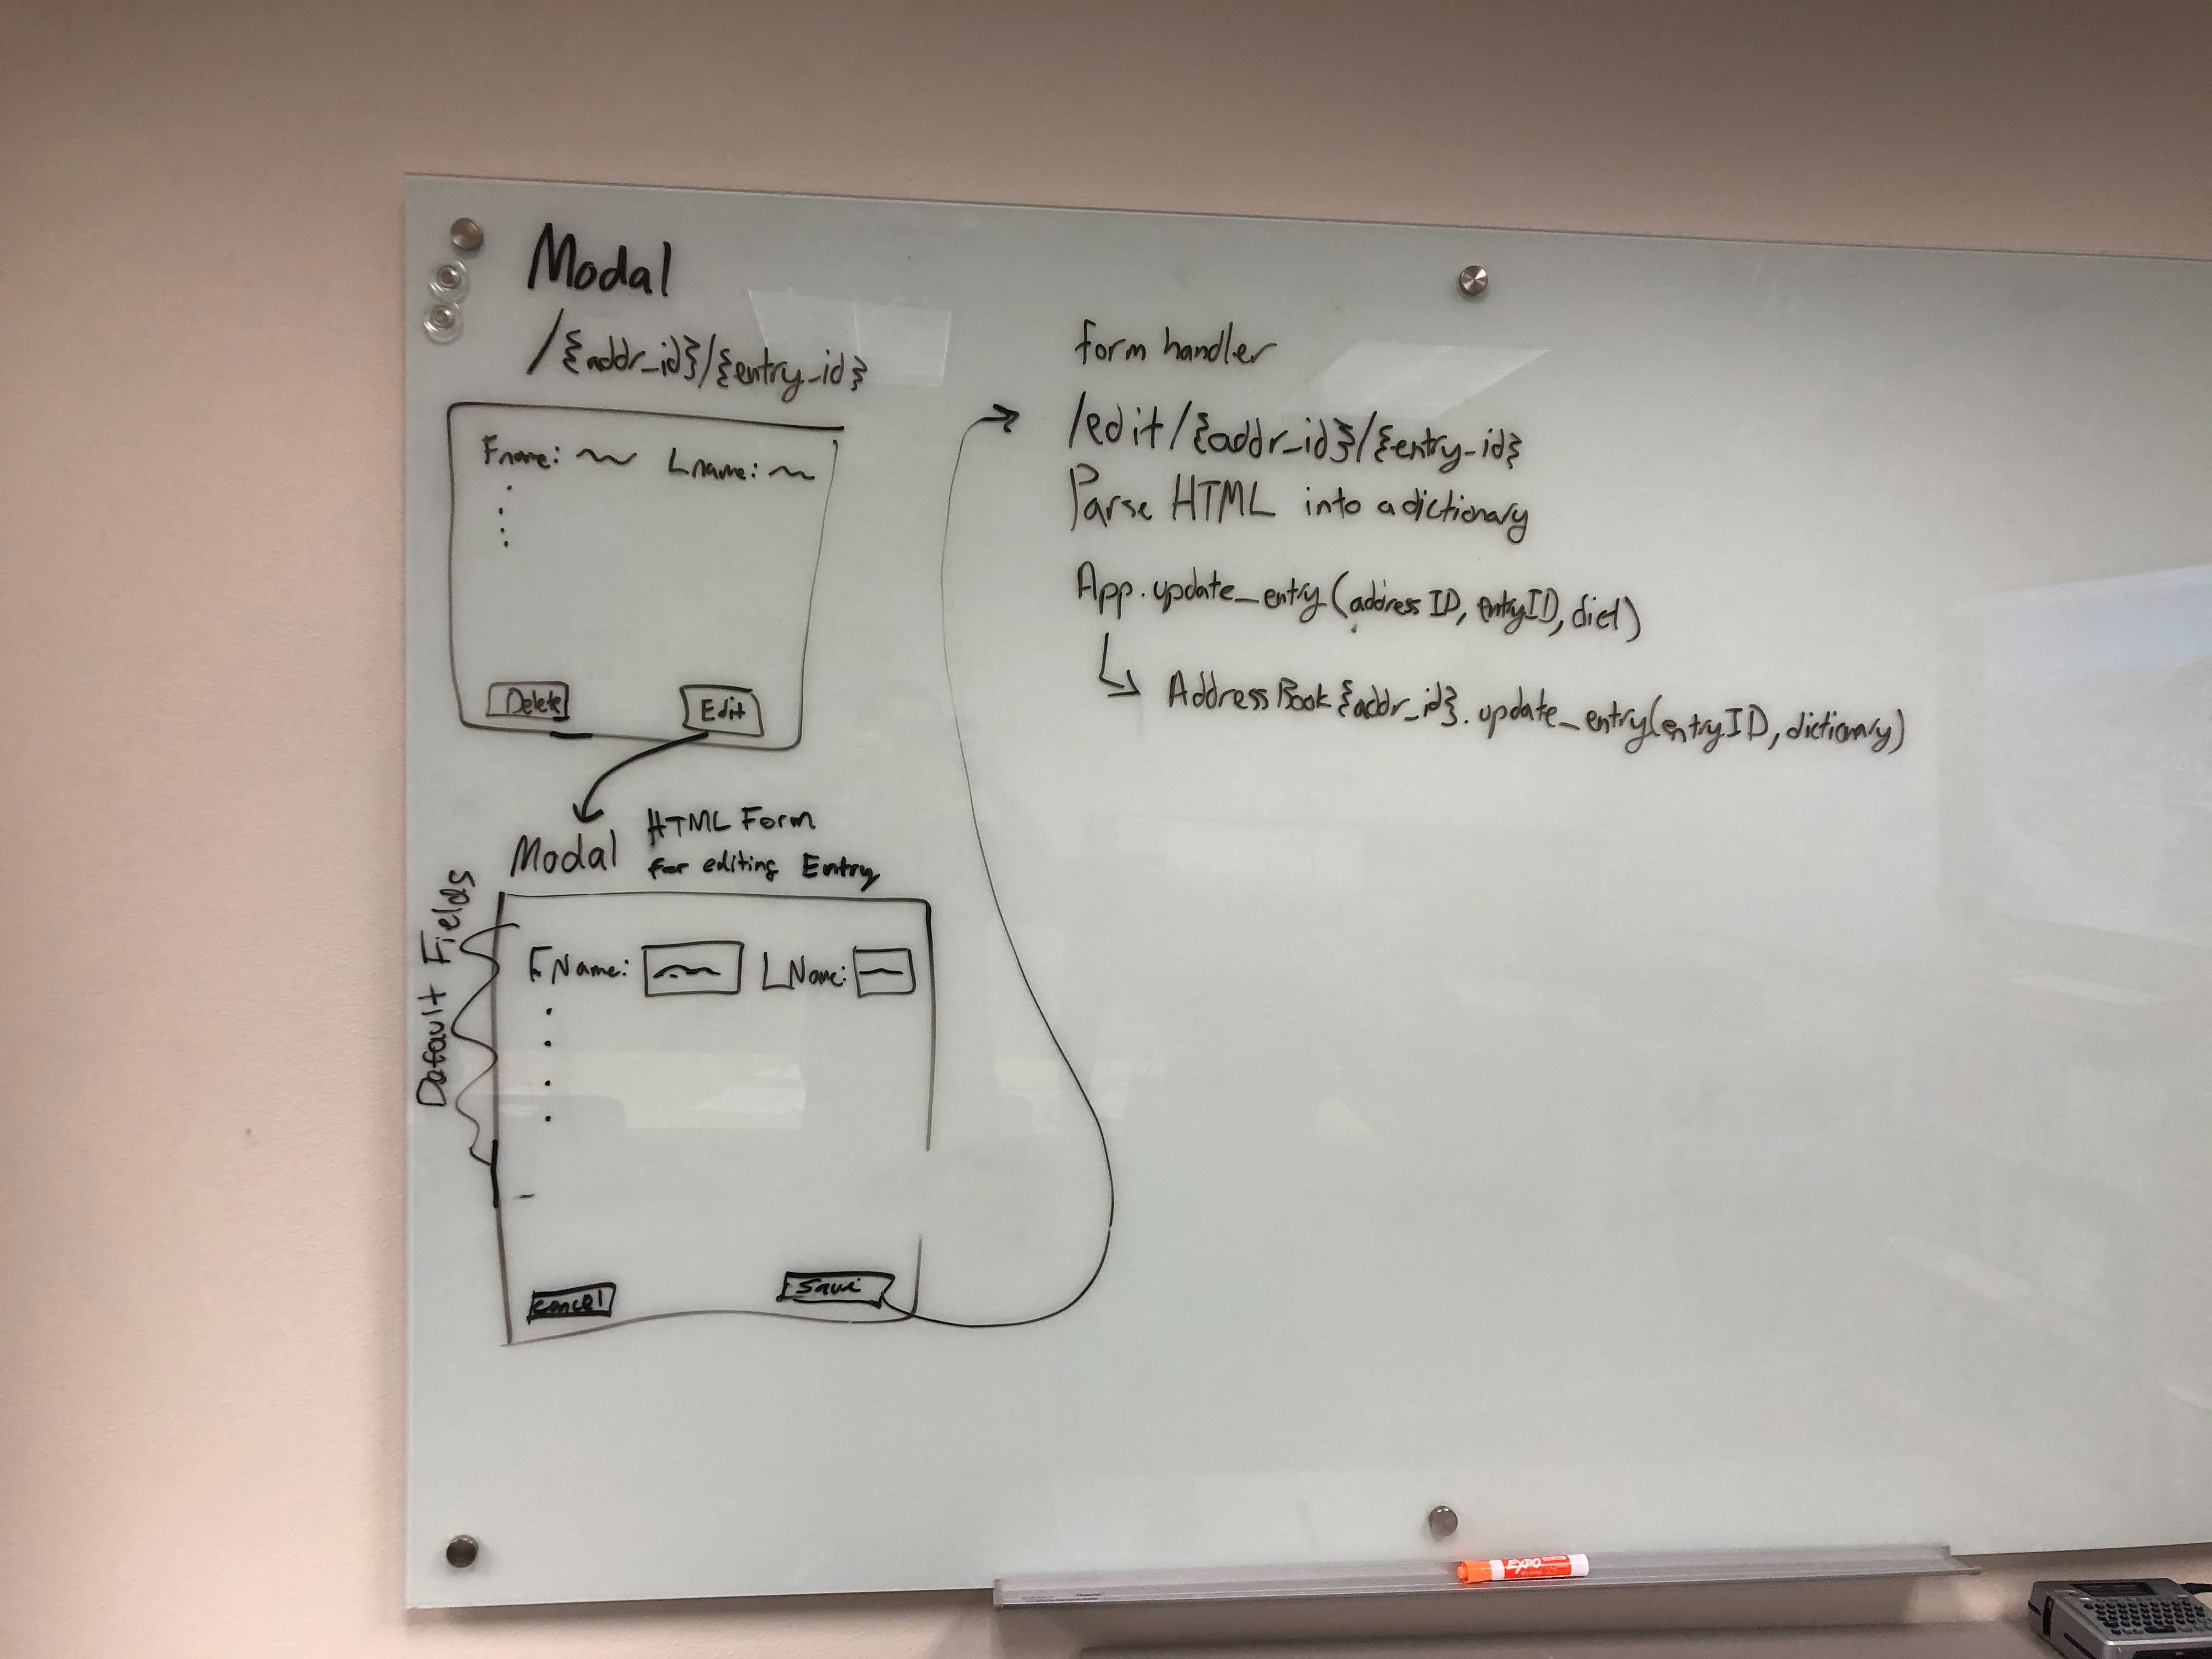 Modal
/{addr_id}/{entry_id}
Fname: Lname:
Delete Edit
Modal HTML Form
for editing Entry
Default Fields
FName: LName:
cancel Save
form handler
/edit/{addr_id}/{entry_id}
Parse HTML into a dictionary
App.update_entry(address ID, entryID, dict)
AddressBook{addr_id}.update_entry(entryID, dictionary)
EXPO